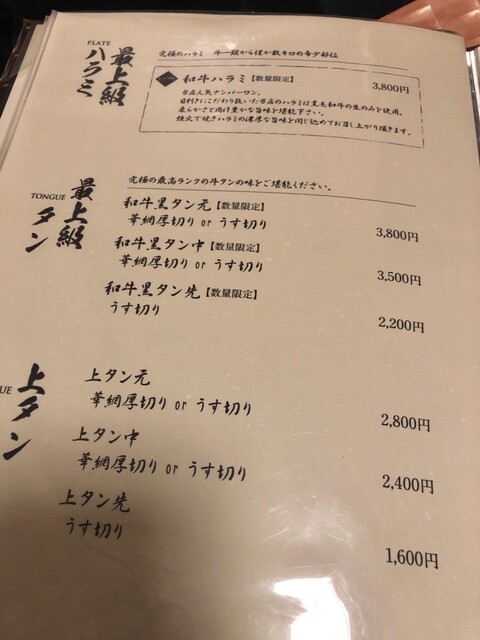 PLATE
最上級
ハラミ
究極のハラミ 牛一頭から僅か数キロの希少部位
和牛ハラミ【数量限定】 3,800円
当店人気ナンバーワン。
目利きにこだわり抜いた当店のハラミは黒毛和牛の生のみを使用。
柔らかさと肉汁豊かな旨味を堪能下さい。
強火で焼きハラミの濃厚な旨味を閉じ込めてお召し上がり頂きます。
TONGUE
最上級
タン
究極の最高ランクの牛タンの味をご堪能ください。
和牛黒タン元【数量限定】
華網厚切り or うす切り 3,800円
和牛黒タン中【数量限定】
華網厚切り or うす切り 3,500円
和牛黒タン先【数量限定】
うす切り 2,200円
UE
上タン
上タン元
華網厚切り or うす切り 2,800円
上タン中
華網厚切り or うす切り 2,400円
上タン先
うす切り 1,600円